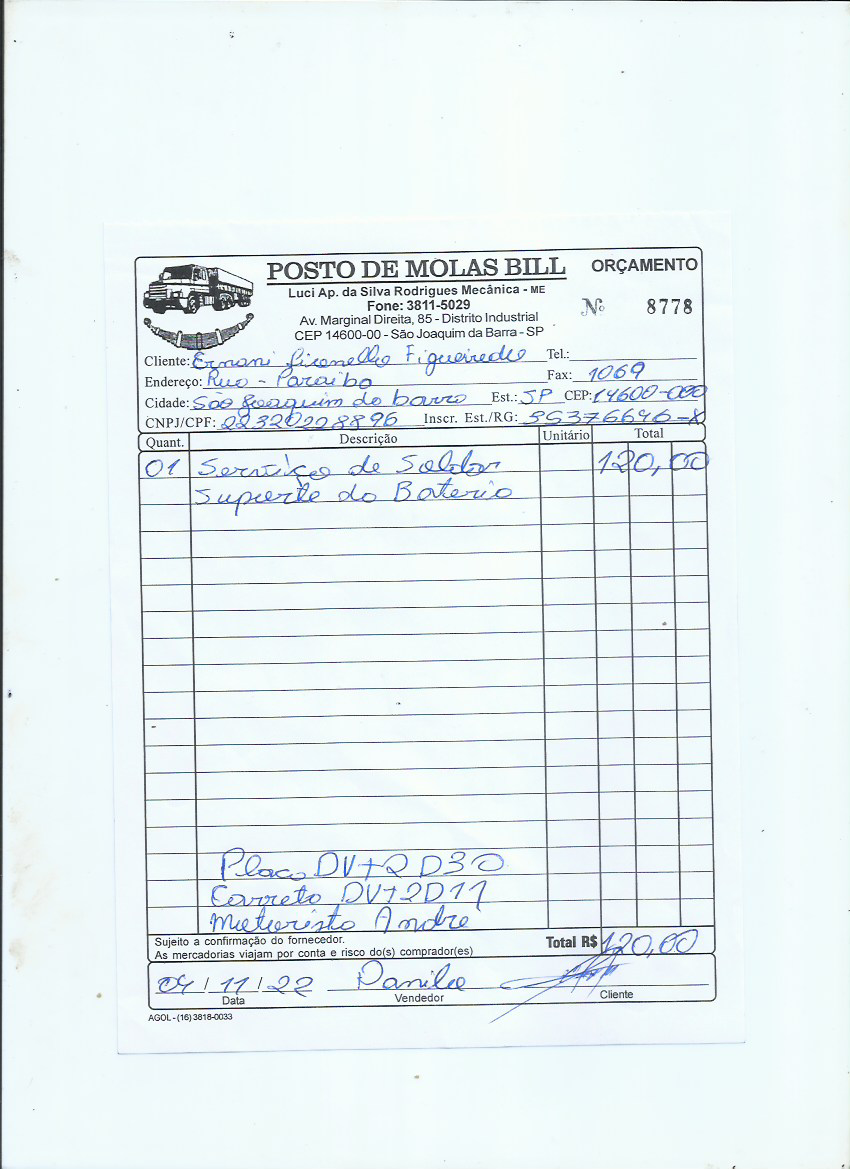 POSTO DE MOLAS BILL ORÇAMENTO
Luci Ap. da Silva Rodrigues Mecânica - ME
Fone: 3811-5029
Nº 8778
Av. Marginal Direita, 85 - Distrito Industrial
CEP 14600-00 - São Joaquim da Barra - SP
Cliente: Ernani Figueiredo Tel.:
Endereço: Rua - Paraiba Fax: 1069
Cidade: São Joaquim da barra Est.: SP CEP: 14600-000
CNPJ/CPF: 22320228896 Inscr. Est./RG: 35376646-X
Quant. Descrição Unitário Total
01 Serviço de Soldar 120,00
Suporte da Bateria
Placa DVT2D30
Carreta DVT2D11
Motorista André
Sujeito a confirmação do fornecedor.
As mercadorias viajam por conta e risco do(s) comprador(es)
Total R$ 120,00
04 / 11 / 22 Danilo
Data Vendedor Cliente
AGOL - (16) 3818-0033